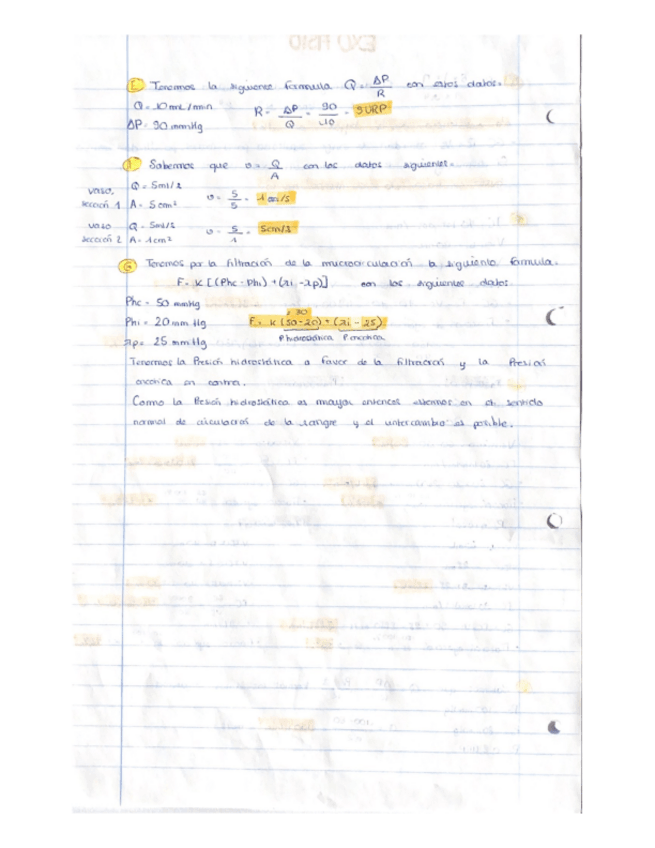 E. Tenemos la siguiente formula Q = ΔP/R con estos datos.
Q = 10 mL/min R = ΔP/Q = 90/10 = 9 URP
ΔP = 90 mmHg
F. Sabemos que v = Q/A con los datos siguientes.
vaso, sección 1 Q = 5ml/s A = 5cm² v = 5/5 = 1 cm/s
vaso sección 2 Q = 5ml/s A = 1cm² v = 5/1 = 5cm/s
G Tenemos por la filtración de la microcirculación la siguiente formula.
F = K [(Phc - Phi) + (πi - πp)] con los siguientes datos
Phc = 50 mmHg
+ 30
Phi = 20 mm Hg F = K (50-20) + (πi - 25)
πp = 25 mm Hg P.hidrostática P.oncotica
Tenemos la Presión hidrostática a favor de la filtracion y la Presion
oncotica en contra.
Como la Presión hidrostática es mayor entonces estamos en el sentido
normal de circulacion de la sangre y el intercambio es posible.